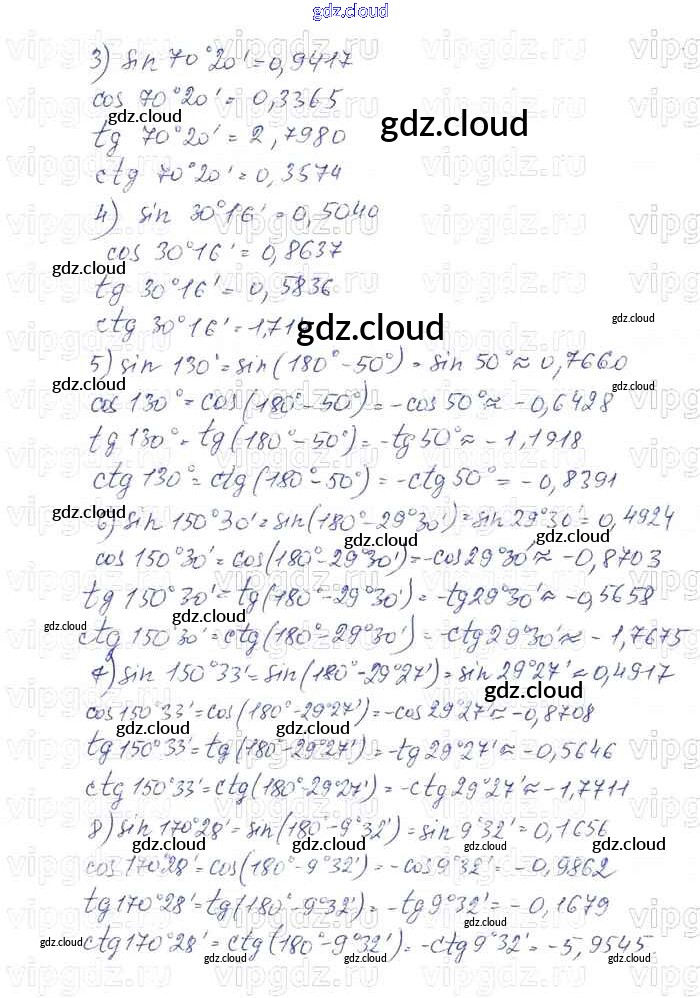 gdz.cloud
3) sin 70°20' = 0,9417
cos 70°20' = 0,3365
gdz.cloud
tg 70°20' = 2,7980
gdz.cloud
ctg 70°20' = 0,3574
4) sin 30°16' = 0,5040
cos 30°16' = 0,8637
gdz.cloud
tg 30°16' = 0,5836
gdz.cloud
ctg 30°16' = 1,71
gdz.cloud
5) sin 130° = sin(180° - 50°) = sin 50° ≈ 0,7660
gdz.cloud
cos 130° = cos(180° - 50°) = -cos 50° ≈ -0,6428
tg 130° = tg(180° - 50°) = -tg 50° ≈ -1,1918
ctg 130° = ctg(180° - 50°) = -ctg 50° = -0,8391
gdz.cloud
6) sin 150°30' = sin(180° - 29°30') = sin 29°30' = 0,4924
gdz.cloud gdz.cloud
cos 150°30' = cos(180° - 29°30') = -cos 29°30' ≈ -0,8703
tg 150°30' = tg(180° - 29°30') = -tg 29°30' ≈ -0,5658
gdz.cloud
gdz.cloud
ctg 150°30' = ctg(180° - 29°30') = -ctg 29°30' ≈ -1,7675
7) sin 150°33' = sin(180° - 29°27') = sin 29°27' ≈ 0,4917
gdz.cloud
cos 150°33' = cos(180° - 29°27') = -cos 29°27' ≈ -0,8708
gdz.cloud gdz.cloud
tg 150°33' = tg(180° - 29°27') = -tg 29°27' ≈ -0,5646
ctg 150°33' = ctg(180° - 29°27') = -ctg 29°27' ≈ -1,7711
8) sin 170°28' = sin(180° - 9°32') = sin 9°32' = 0,1656
gdz.cloud gdz.cloud gdz.cloud
cos 170°28' = cos(180° - 9°32') = -cos 9°32' = -0,9862
tg 170°28' = tg(180° - 9°32') = -tg 9°32' = -0,1679
gdz.cloud
ctg 170°28' = ctg(180° - 9°32') = -ctg 9°32' = -5,9545
gdz.cloud gdz.cloud